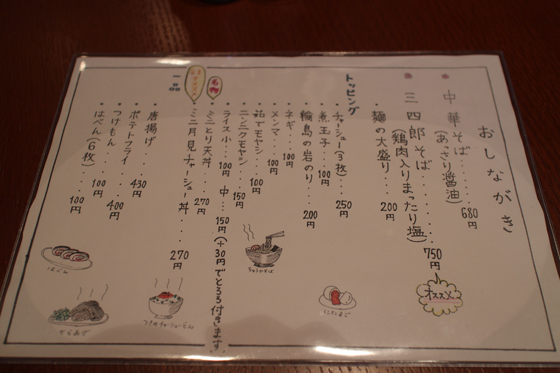 おしながき
中華そば……680円
(あっさり醤油)
三四郎そば……750円
(鶏肉入りまったり塩)
オススメ
麺の大盛り…200円
トッピング
チャーシュー(3枚)…250円
煮玉子…100円
輪島の岩のり…200円
ネギ…100円
メンマ…100円
茹でモヤシ…100円
ニンニクモヤシ…150円
ライス小…100円 中…150円(+30円でとろろ付きます)
名物
ミニとり天丼…270円
ミニ月見チャーシュー丼…270円
一品
唐揚げ…430円
ポテトフライ…400円
つけもん…100円
はべん(6枚)…100円
はべん
からあげ
ちゅうかそば
にたまご